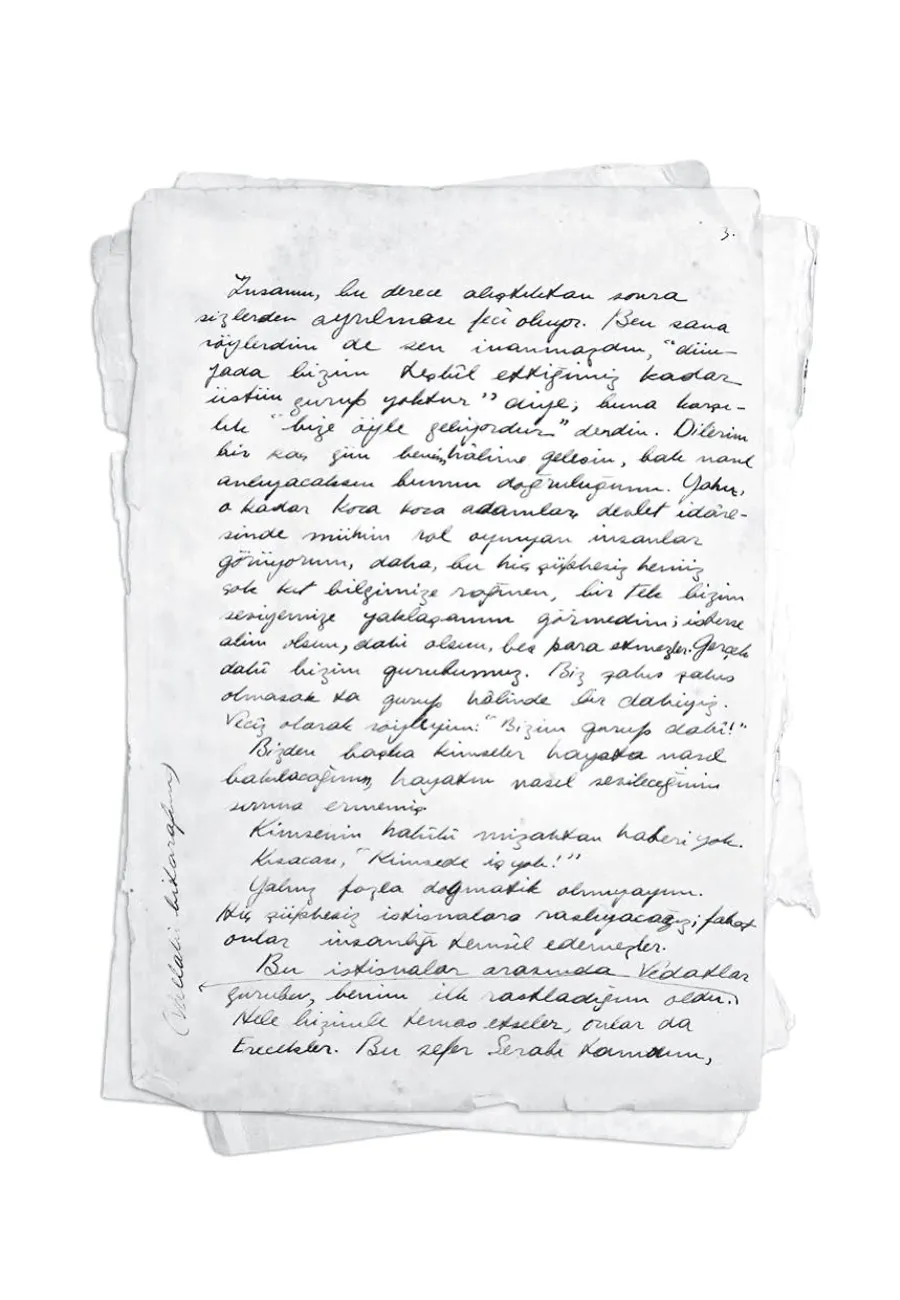 3.
İnsanın, bu derece alıştıktan sonra
sizlerden ayrılması feci oluyor. Ben sana
söylerdim de sen inanmazdın, "dün-
yada bizim teşkil ettiğimiz kadar
üstün gurup yoktur" diye; buna karşı-
lık "bize öyle geliyordur" derdin. Dilerim
bir kaç gün benim hâlime gelesin, bak nasıl
anlıyacaksın bunun doğruluğunu. Yahu,
o kadar koca koca adamlar, devlet idâre-
sinde mühim rol oynıyan insanlar
görüyorum, daha, bu hiç şüphesiz henüz
çok kıt bilgimize rağmen, bir tek bizim
seviyemize yaklaşanını görmedim; isterse
alim olsun, dahi olsun, beş para etmezler. Gerçek
dahi bizim gurubumuz. Biz şahıs şahıs
olmasak ta gurup hâlinde bir dahiyiz.
Veciz olarak söyliyeyim: "Bizim gurup dahi!"
Bizden başka kimseler hayata nasıl
bakılacağının, hayatın nasıl sezileceğinin
sırrına ermemiş
Kimsenin hakîki mizahtan haberi yok.
Kısacası, "Kimsede iş yok!"
Yalnız fazla dogmatik olmıyayım.
Hiç şüphesiz istisnalara raslıyacağız; fakat
onlar insanlığı temsil edemezler.
Bu istisnalar arasında Vedatlar
gurubu, benim ilk rastladığım oldu.
Hele bizimle temas etseler, onlar da
Erecekler. Bu sefer Serabı tanıdım,
(Vallahi bitarafım)